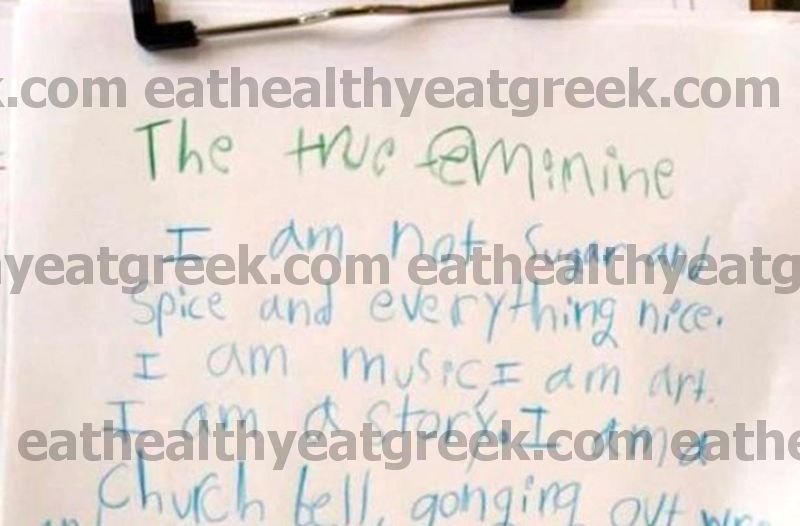 k.com eathealthyeatgreek.com
The true feminine
I am not sugar and
yeatgreek.com eathealthyeatg
Spice and everything nice.
I am music, I am art.
I am a story. I am a
eathealthyeatgreek.com eathe
Church bell, gonging out